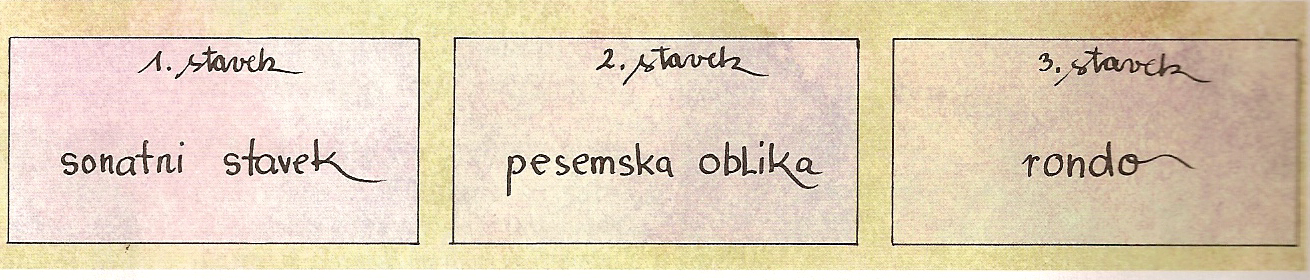 1. stavek
sonatni stavek
2. stavek
pesemska oblika
3. stavek
rondo